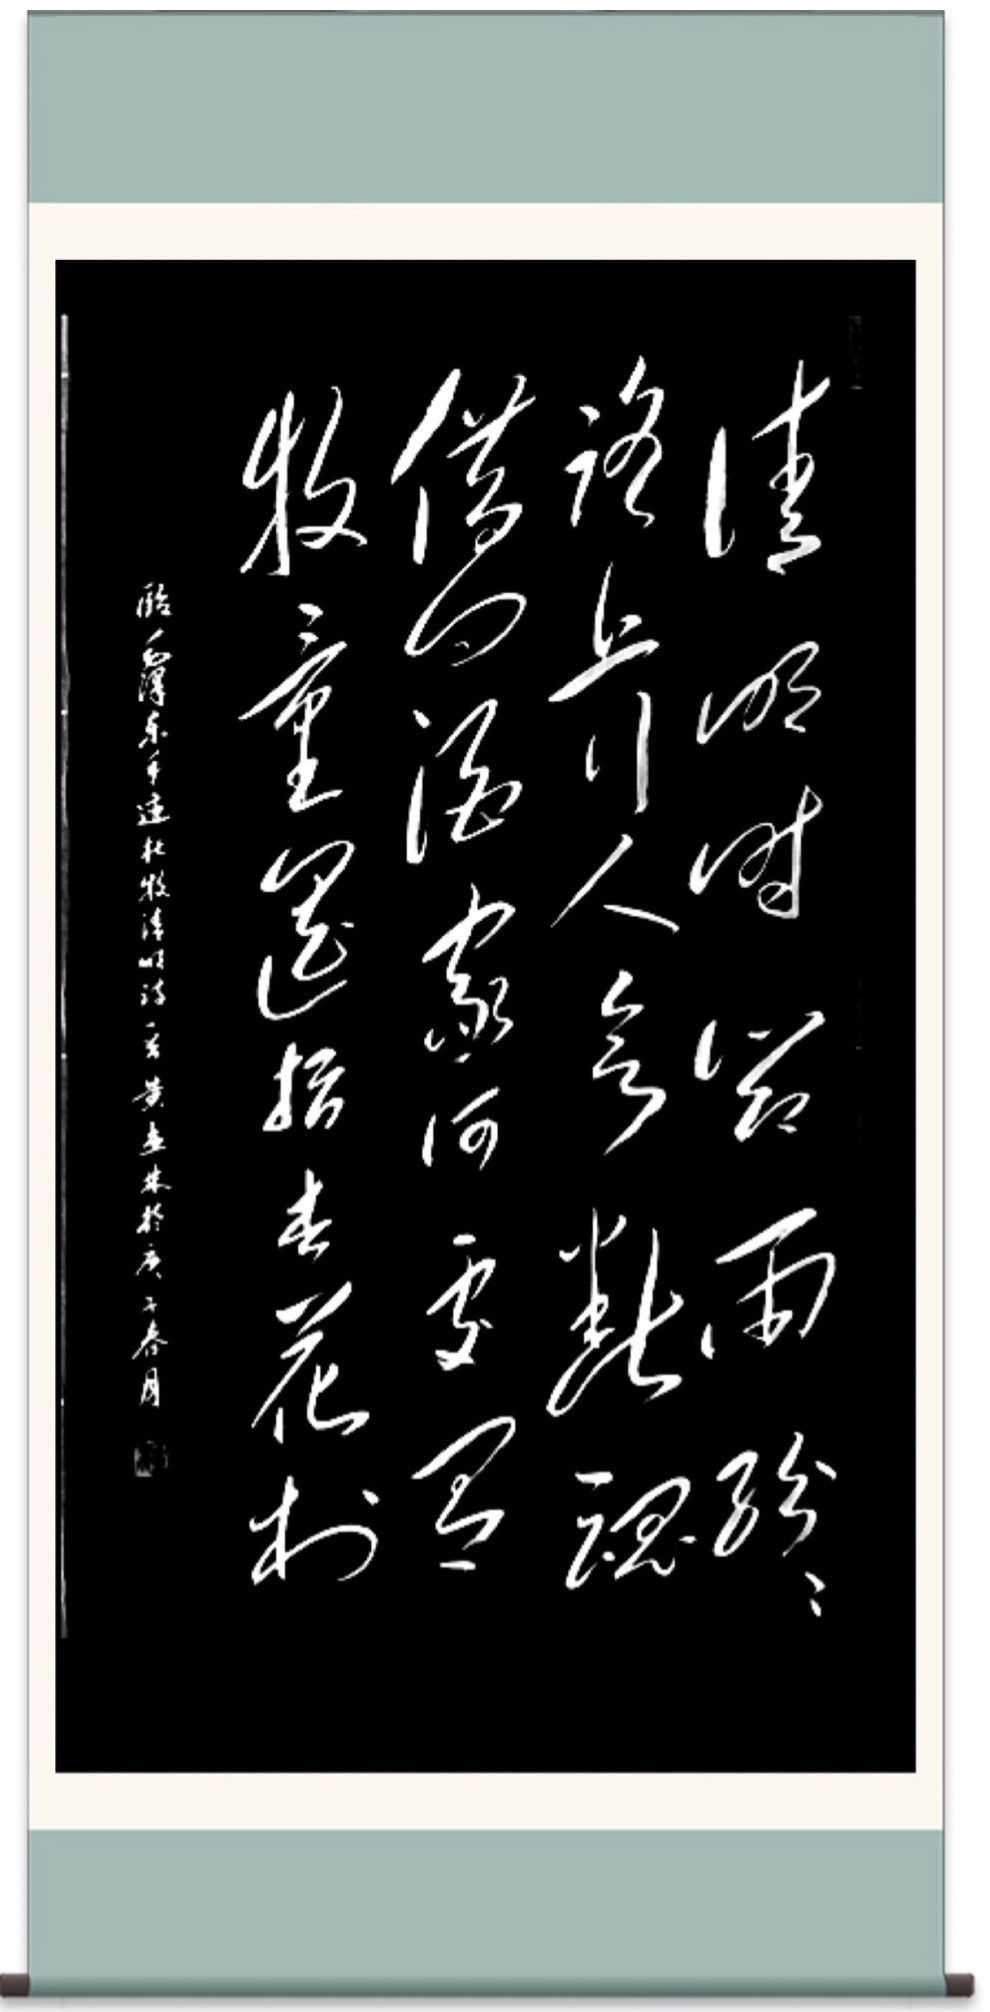 清明时節雨纷纷
路上行人欲断魂
借问酒家何处有
牧童遥指杏花村
临毛泽东手迹杜牧清明诗一首黄林於庚子春月